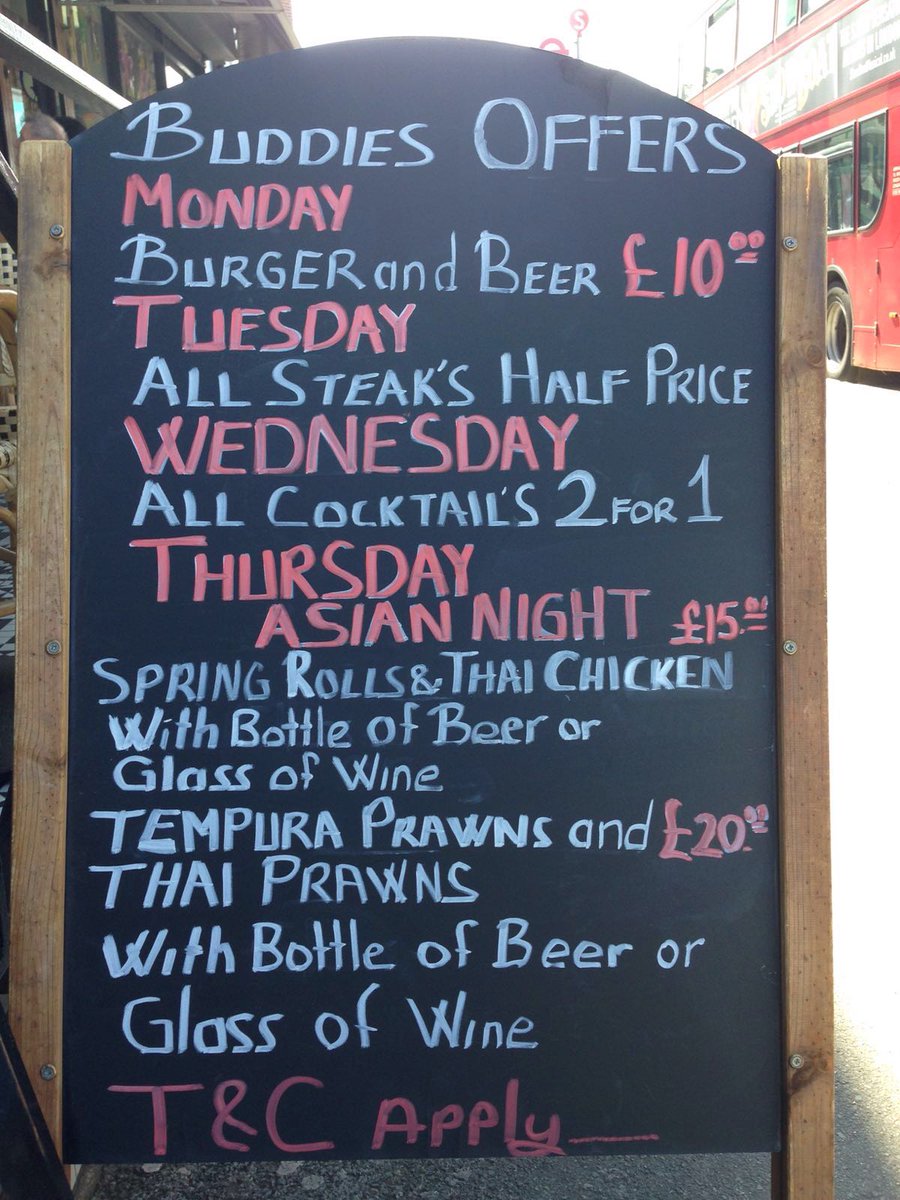 S
BUDDIES OFFERS
MONDAY
BURGER and BEER £10.00
TUESDAY
ALL STEAK'S HALF PRICE
WEDNESDAY
ALL COCKTAIL'S 2 FOR 1
THURSDAY
ASIAN NIGHT £15.00
SPRING ROLLS & THAI CHICKEN
With Bottle of Beer or
Glass of Wine
TEMPURA PRAWNS and £20.00
THAI PRAWNS
With Bottle of Beer or
Glass of Wine
T&C Apply